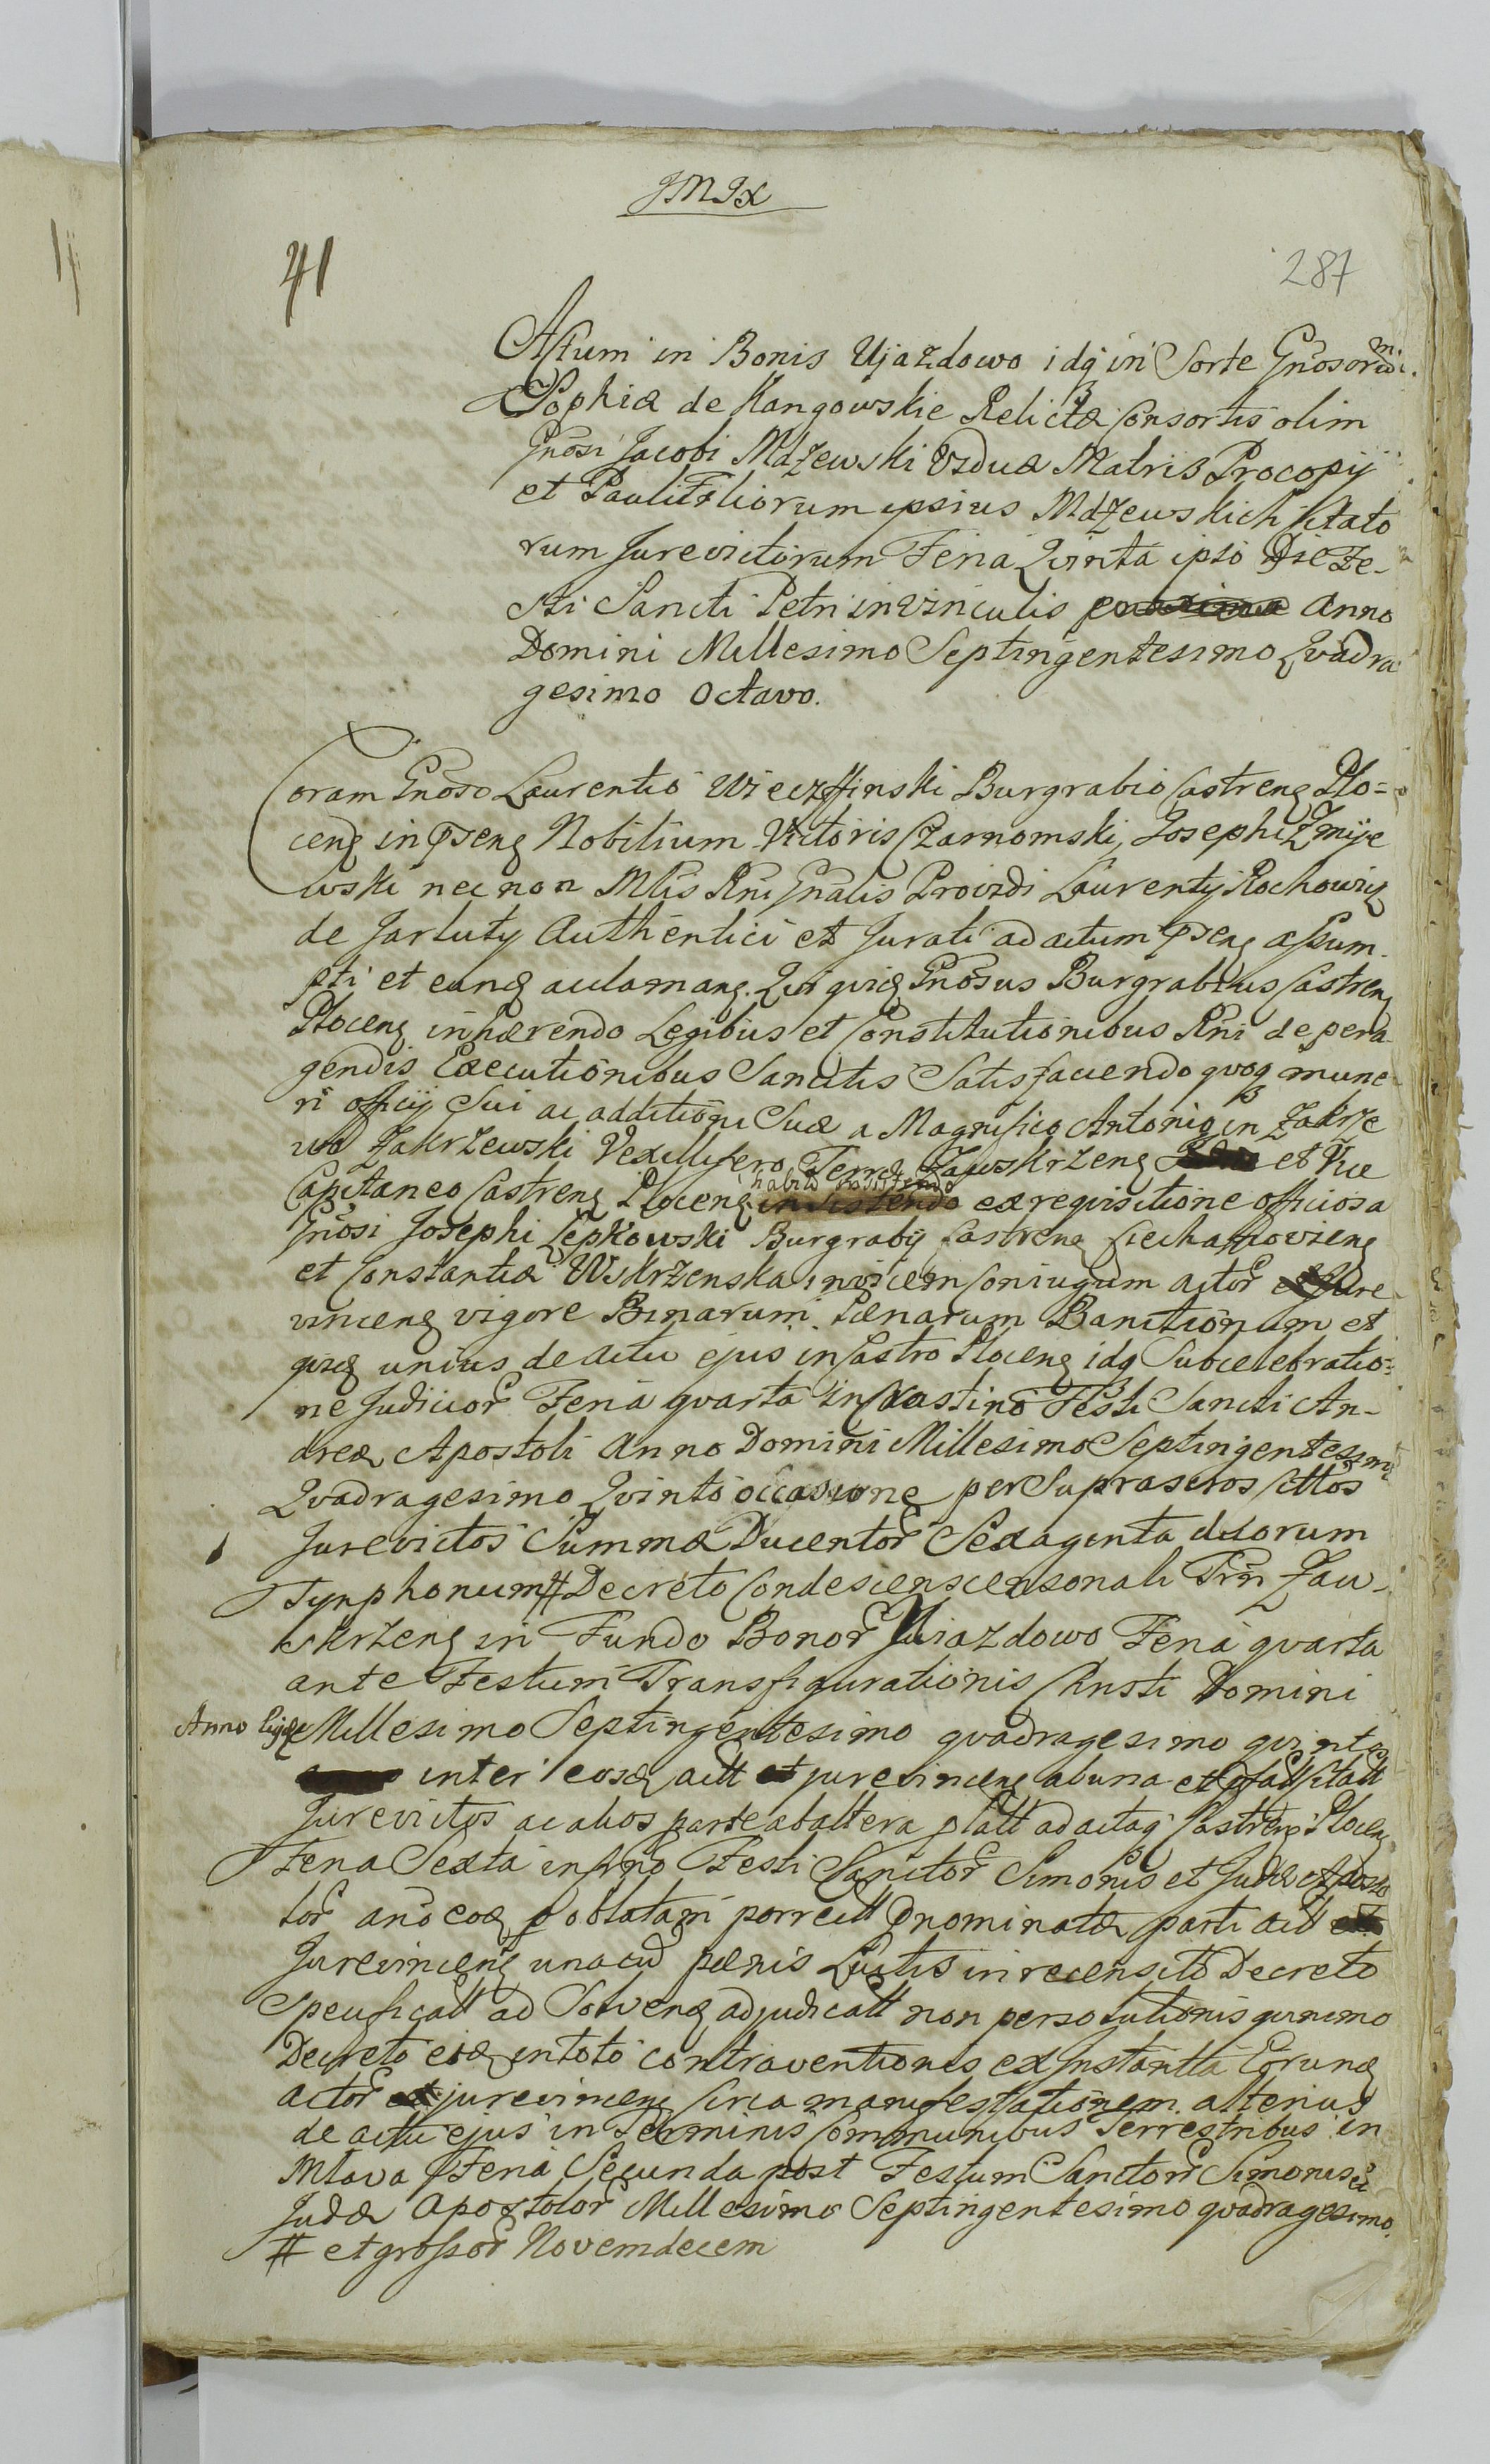 JMJx
41
287
Actum in Bonis Ujazdowo idq in Sorte Gnosorum
Sophiæ de Kangowskie Relictæ Consortis olim
Gnosi Jacobi Mdzewski Viduæ Matris Procopij
et Pauli Filiorum ipsius Mdzewskich Citato
rum Jurevictorum Feria Qvinta ipso Die Fe-
sti Sancti Petri in Vinculis Anno
Domini Millesimo Septingentesimo Qvadra
gesimo Octavo.
Coram Gnoso Laurentio Wieczffinski Burgrabio Castrenq Plo=
cenq in pszenq Nobilium Victoris Czarnomski, Josephi Zmije
wski nec non Mlis Rni Gnalis Providi Laurentij Rochowicz
de Jarluty Authentici et Jurati ad actum pszenq assum-
pti et eunq acclamanq. Qui quiq Gnosus Burgrabius Castrenq
Plocenq inhærendo Legibus et Constitutionibus Rni de pera-
gendis Executionibus Sancitis Satisfaciendo qvoq mune
ri officij Sui ac additioni Suæ a Magnifico Antonio in Zakrze
wo Zakrzewski Vexillifero Terræ Zawskrzenq et Vice
Capitaneo Castrenq Plocenq habito insistendo ex requisitione officiosa
Gnosi Josephi Lępkowski Burgrabij Castrenq Ciechanovienq
et Constantiæ Wskrzenska invicem Coniugum actor Jure
vincenq vigore Binarum Pænarum Banitionum et
quiq unius de actu ejus in Castro Plocenq idq Sub celebratio=
ne Judicior Feria qvarta in Crastino Festi Sancti An-
dreæ Apostoli Anno Domini Millesimo Septingentesimo
Qvadragesimo Qvinto occasione per Suprascros Cittos
Jurevictos Summæ Ducentor Sexaginta duorum
Tynphonum # Decreto Condescenscensonali Trri Zaw-
skrzenq in Fundo Bonor Ujazdowo Feria qvarta
ante Festum Transfigurationis Christi Domini
Anno Millesimo Septingentesimo qvadragesimo qvinto
inter eosq actt jurevincenq ab una et citatt
Jurevictos ac alios parte ab altera latt ad actaq Castrenq Plocenq
Feria Sexta in Festi Sanctor Simonis et Judæ Aposto
lor año eoq p oblatam porrectt pnominatæ parti actt
Jurevincenq una cũ pænis Luitis in recensito Decreto
specificatt ad Solvenq adjudicatt non persolutionis quinimo
Decreto eiq in toto contraventionis ex Instantia Eorunq
actor jurevincenq Circa manifestationem alterius
de actu ejus in Terminis Communibus Terrestribus in
Mlava Feria Secunda post Festum Sanctorr Simonis et
Judæ Apostolor Millesimo Septingentesimo qvadragesimo
# et grossor Novemdecem